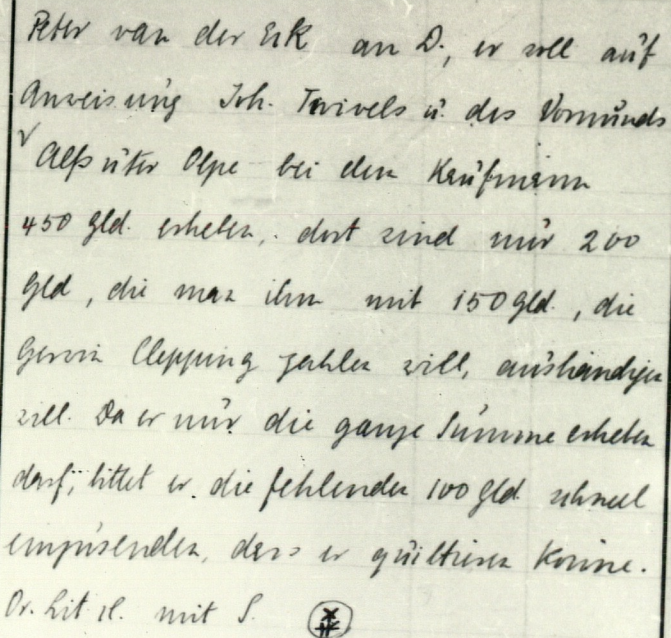 Peter van der Erk an D., er soll auf
Anweisung Joh. Twivels u. des Vormunds
Alf uter Olpe bei dem Kaufmann
450 gld. erheben, dort sind nur 200
gld, die man ihm mit 150 gld., die
Gerwin Clepping zahlen will, aushändigen
will. Da er nur die ganze Summe erheben
darf, bittet er die fehlenden 100 gld schnell
einzusenden, dass er quittieren könne.
Or. mit S.